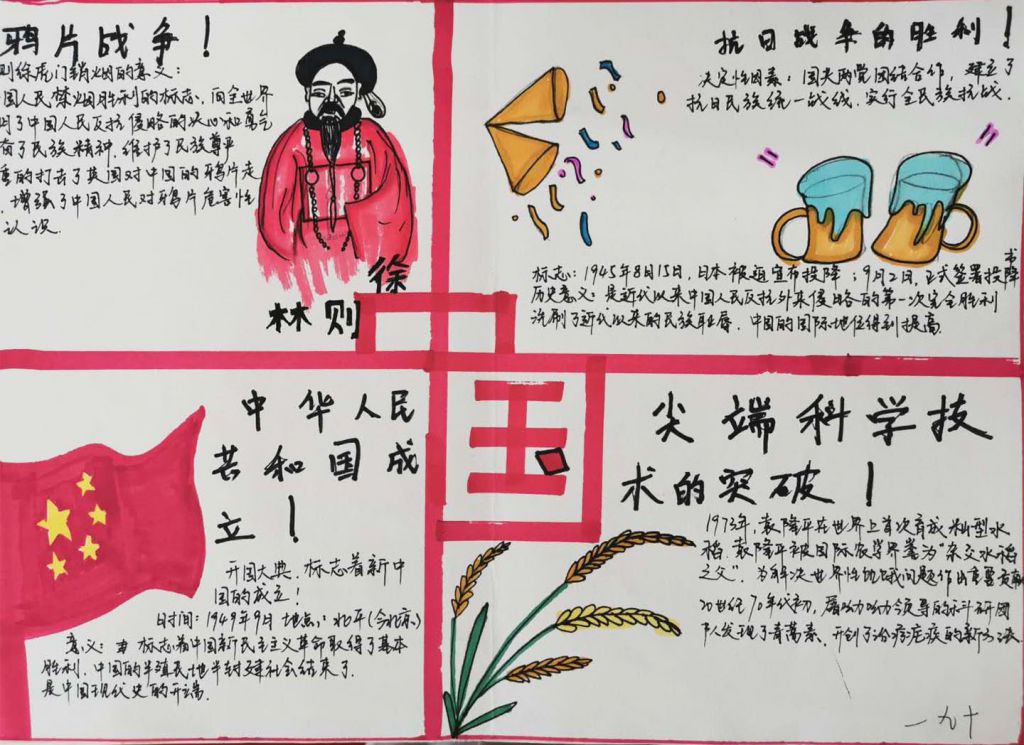 鸦片战争！
则徐虎门销烟的意义：
国人民禁烟胜利的标志，向全世界
明了中国人民反抗侵略的决心和勇气
奋了民族精神，维护了民族尊严
重的打击了英国对中国的鸦片走
，增强了中国人民对鸦片危害性
认识.
林则徐
抗日战争的胜利！
决定性因素：国共两党团结合作，建立了
抗日民族统一战线，实行全民族抗战.
标志：1945年8月15日，日本被迫宣布投降；9月2日，正式签署投降书
历史意义：是近代以来中国人民反抗外来侵略的第一次完全胜利
洗刷了近代以来的民族耻辱，中国的国际地位得到提高.
中国
中华人民
共和国成
立！
开国大典，标志着新中
国的成立！
时间：1949年9月 地点：北平(今北京)
意义：标志着中国新民主主义革命取得了基本
胜利，中国的半殖民地半封建社会结束了.
是中国现代史的开端.
尖端科学技
术的突破！
1973年，袁隆平在世界上首次育成籼型水
稻，袁隆平被国际农学界誉为“杂交水稻
之父”，为解决世界性饥饿问题作出重要贡献
20世纪70年代初，屠呦呦领导的科研团
队发现了青蒿素，开创了治疗疟疾的新方法
一九十